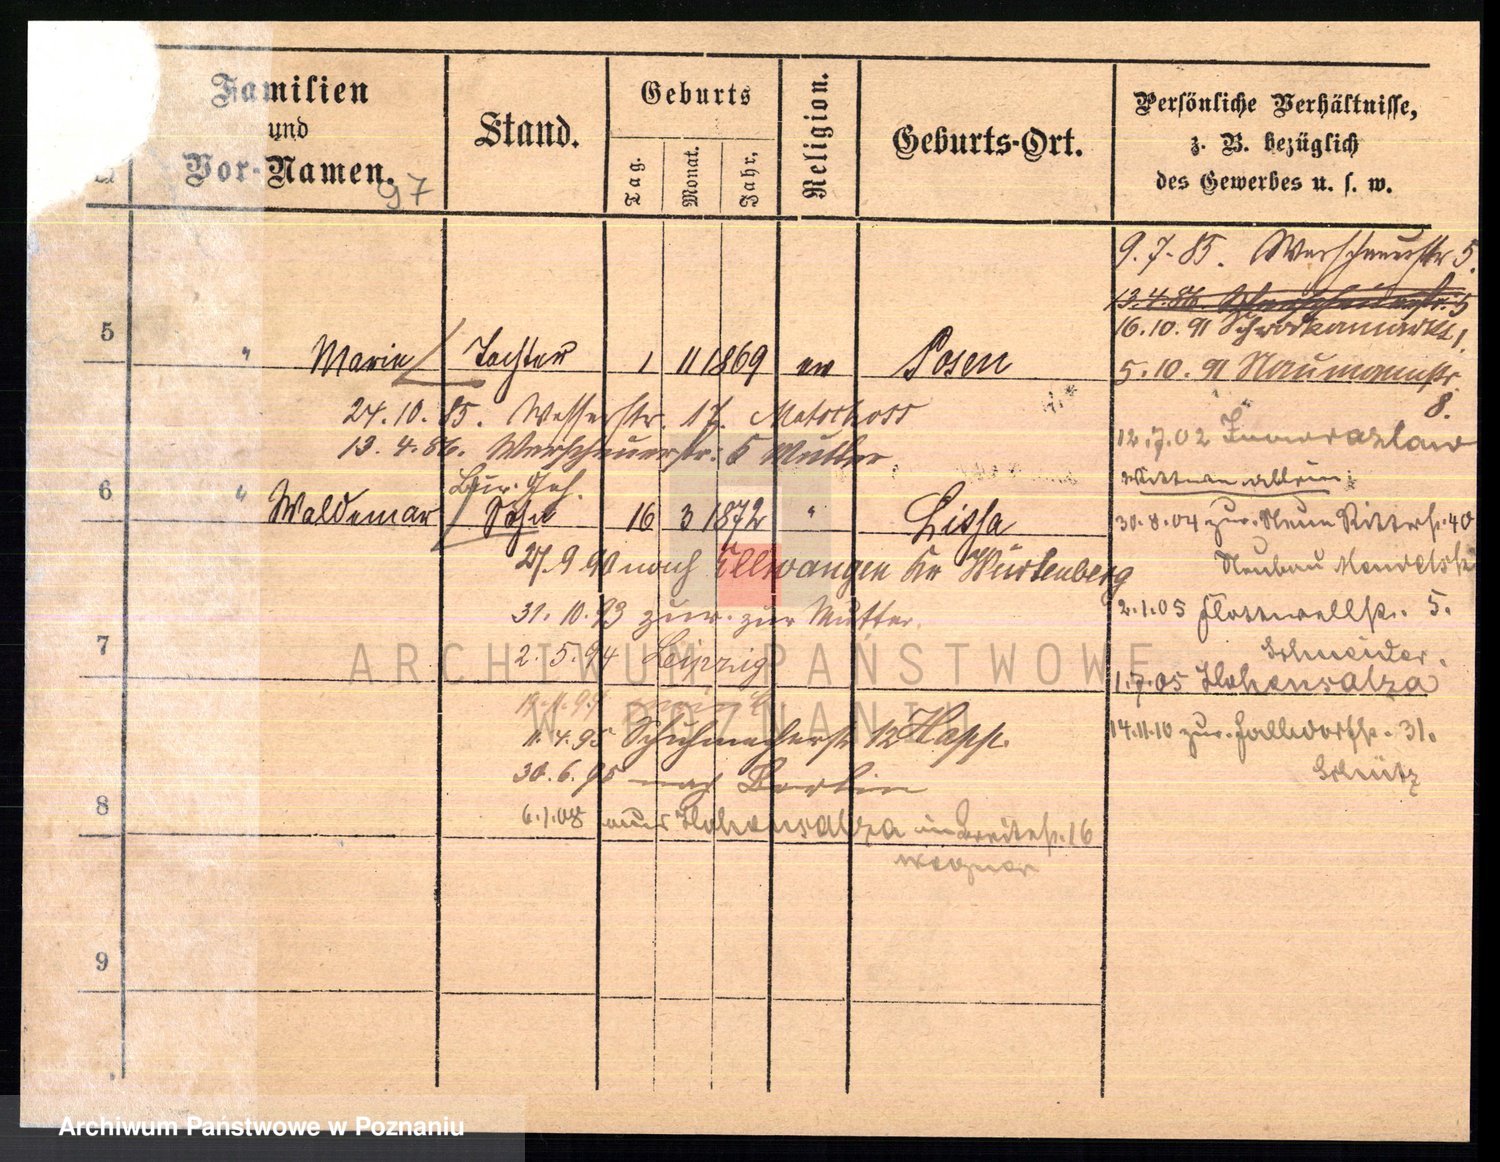 Familien
und
Vor-Namen.
97
Stand.
Geburts
Tag.
Monat.
Jahr.
Religion.
Geburts-Ort.
Persönliche Verhältnisse,
z. B. bezüglich
des Gewerbes u. s. w.
9.7.85. Warschauerstr 5.
13.4.86. Warschauerstr. 5
16.10.91 Schrodkamarkt 1.
5 " Marie Tochter 1 11 1869 ev Posen
5.10.91 Naumannstr.
8.
24.10.85. Wasserstr. 17. Matschoss
13.4.86. Warschauerstr. 5 Mutter
12.7.02 Inowrazlaw
Mutter allein
Bur. Geh.
6 " Waldemar Sohn 16 3 1872 " Lissa
30.8.04 zur. Neue Ritterstr. 40
Neubau
27.9.90 nach Ellwangen Kr Würtenberg
31.10.93 zur. zur Mutter.
2.1.05 Flottwellstr. 5.
Schneider.
7
2.5.94 Leipzig
1.7.05 Hohensalza
11.4.95 Schuhmacherstr 12 Happ.
14.11.10 zur. 31.
Schütz
30.6.95 nach Berlin
8
6.1.08 aus Hohensalza in Breitestr. 16
Wagner
9
ARCHIWUM PAŃSTWOWE
W POZNANIU
Archiwum Państwowe w Poznaniu